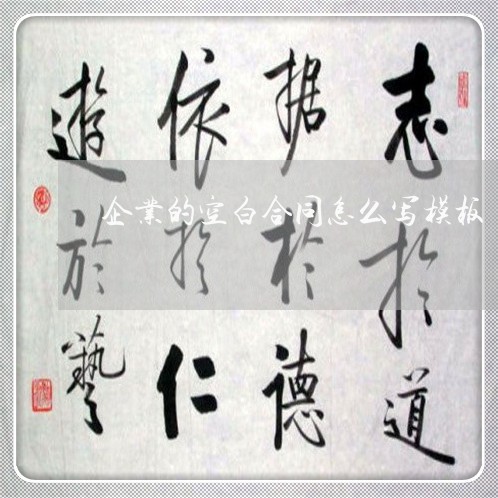 志於道
据於德
依於仁
遊於藝
企業的空白合同怎么写模板